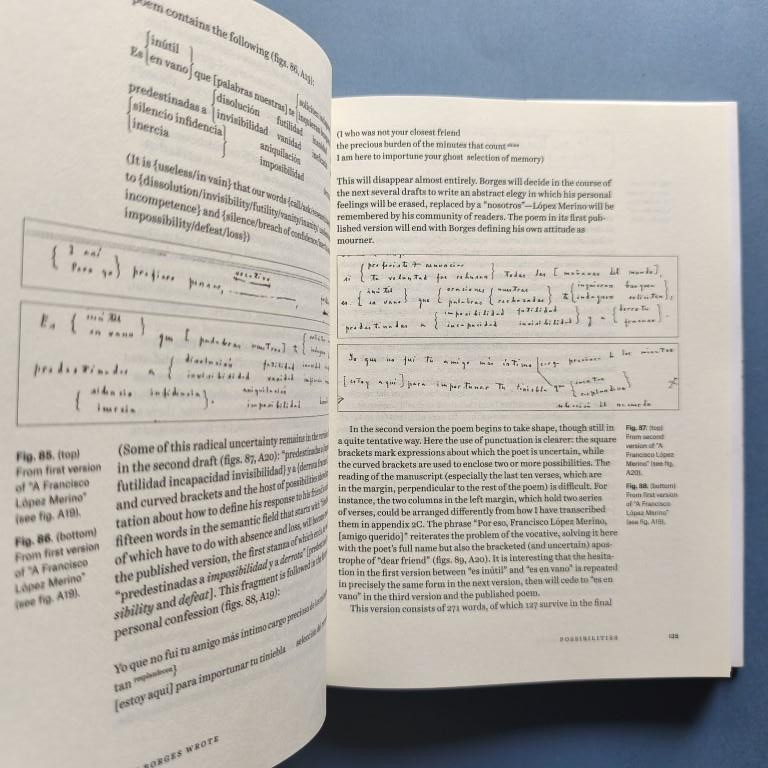 poem contains the following (figs. 86, A19):
Es {inútil
en vano} que [palabras nuestras] te
predestinadas a {disolución futilidad
silencio infidencia invisibilidad vanidad
inercia} aniquilación
imposibilidad
(It is {useless/in vain} that our words
to {dissolution/invisibility/futility/vanity/inanity/
incompetence} and {silence/breach of confidence/
impossibility/defeat/loss})
prefiero pensar,
Es { inútil
en vano } que [ palabras nuestras ] te
predestinadas a { disolución futilidad
invisibilidad vanidad
{ silencio infidencia } . aniquilación
inercia imposibilidad
Fig. 85. (top)
From first version
of "A Francisco
López Merino"
(see fig. A19).
Fig. 86. (bottom)
From first version
of "A Francisco
López Merino"
(see fig. A19).
(Some of this radical uncertainty remains in the
in the second draft (figs. 87, A20): "predestinadas a
futilidad incapacidad invisibilidad} y a {derrota
and curved brackets and the host of possibilities
tation about how to define his response to his friend's
fifteen words in the semantic field that starts with
of which have to do with absence and loss, will become
the published version, the first stanza of which ends
"predestinadas a imposibilidad y a derrota" [
sibility and defeat]. This fragment is followed in the
personal confession (figs. 88, A19):
Yo que no fui tu amigo más íntimo cargo precioso de los
tan resplandecen}
[estoy aquí] para importunar tu tiniebla selección de
BORGES WROTE
(I who was not your closest friend
the precious burden of the minutes that count
I am here to importune your ghost selection of memory)
This will disappear almost entirely. Borges will decide in the course of
the next several drafts to write an abstract elegy in which his personal
feelings will be erased, replaced by a "nosotros"—López Merino will be
remembered by his community of readers. The poem in its first pub-
lished version will end with Borges defining his own attitude as
mourner.
si { tu voluntad fue rehusar } todas las [ mañanas del mundo ],
es { inútil
en vano } que { oraciones nuestras
palabras rechazadas } te { inquieran busquen
indaguen soliciten },
predestinadas a { imposibilidad futilidad
incapacidad invisibilidad } y a { derrota
Yo que no fui tu amigo más íntimo cargo precioso de los minutos
[estoy aquí] para importunar tu tiniebla que
selección de recuerdo
In the second version the poem begins to take shape, though still in
a quite tentative way. Here the use of punctuation is clearer: the square
brackets mark expressions about which the poet is uncertain, while
the curved brackets are used to enclose two or more possibilities. The
reading of the manuscript (especially the last ten verses, which are
in the margin, perpendicular to the rest of the poem) is difficult. For
instance, the two columns in the left margin, which hold two series
of verses, could be arranged differently from how I have transcribed
them in appendix 2C. The phrase "Por eso, Francisco López Merino,
[amigo querido]" reiterates the problem of the vocative, solving it here
with the poet's full name but also the bracketed (and uncertain) apos-
trophe of "dear friend" (figs. 89, A20). It is interesting that the hesita-
tion in the first version between "es inútil" and "es en vano" is repeated
in precisely the same form in the next version, then will cede to "es en
vano" in the third version and the published poem.
This version consists of 271 words, of which 127 survive in the final
Fig. 87. (top)
From second
version of "A
Francisco López
Merino" (see fig.
A20).
Fig. 88. (bottom)
From first version
of "A Francisco
López Merino"
(see fig. A19).
POSSIBILITIES